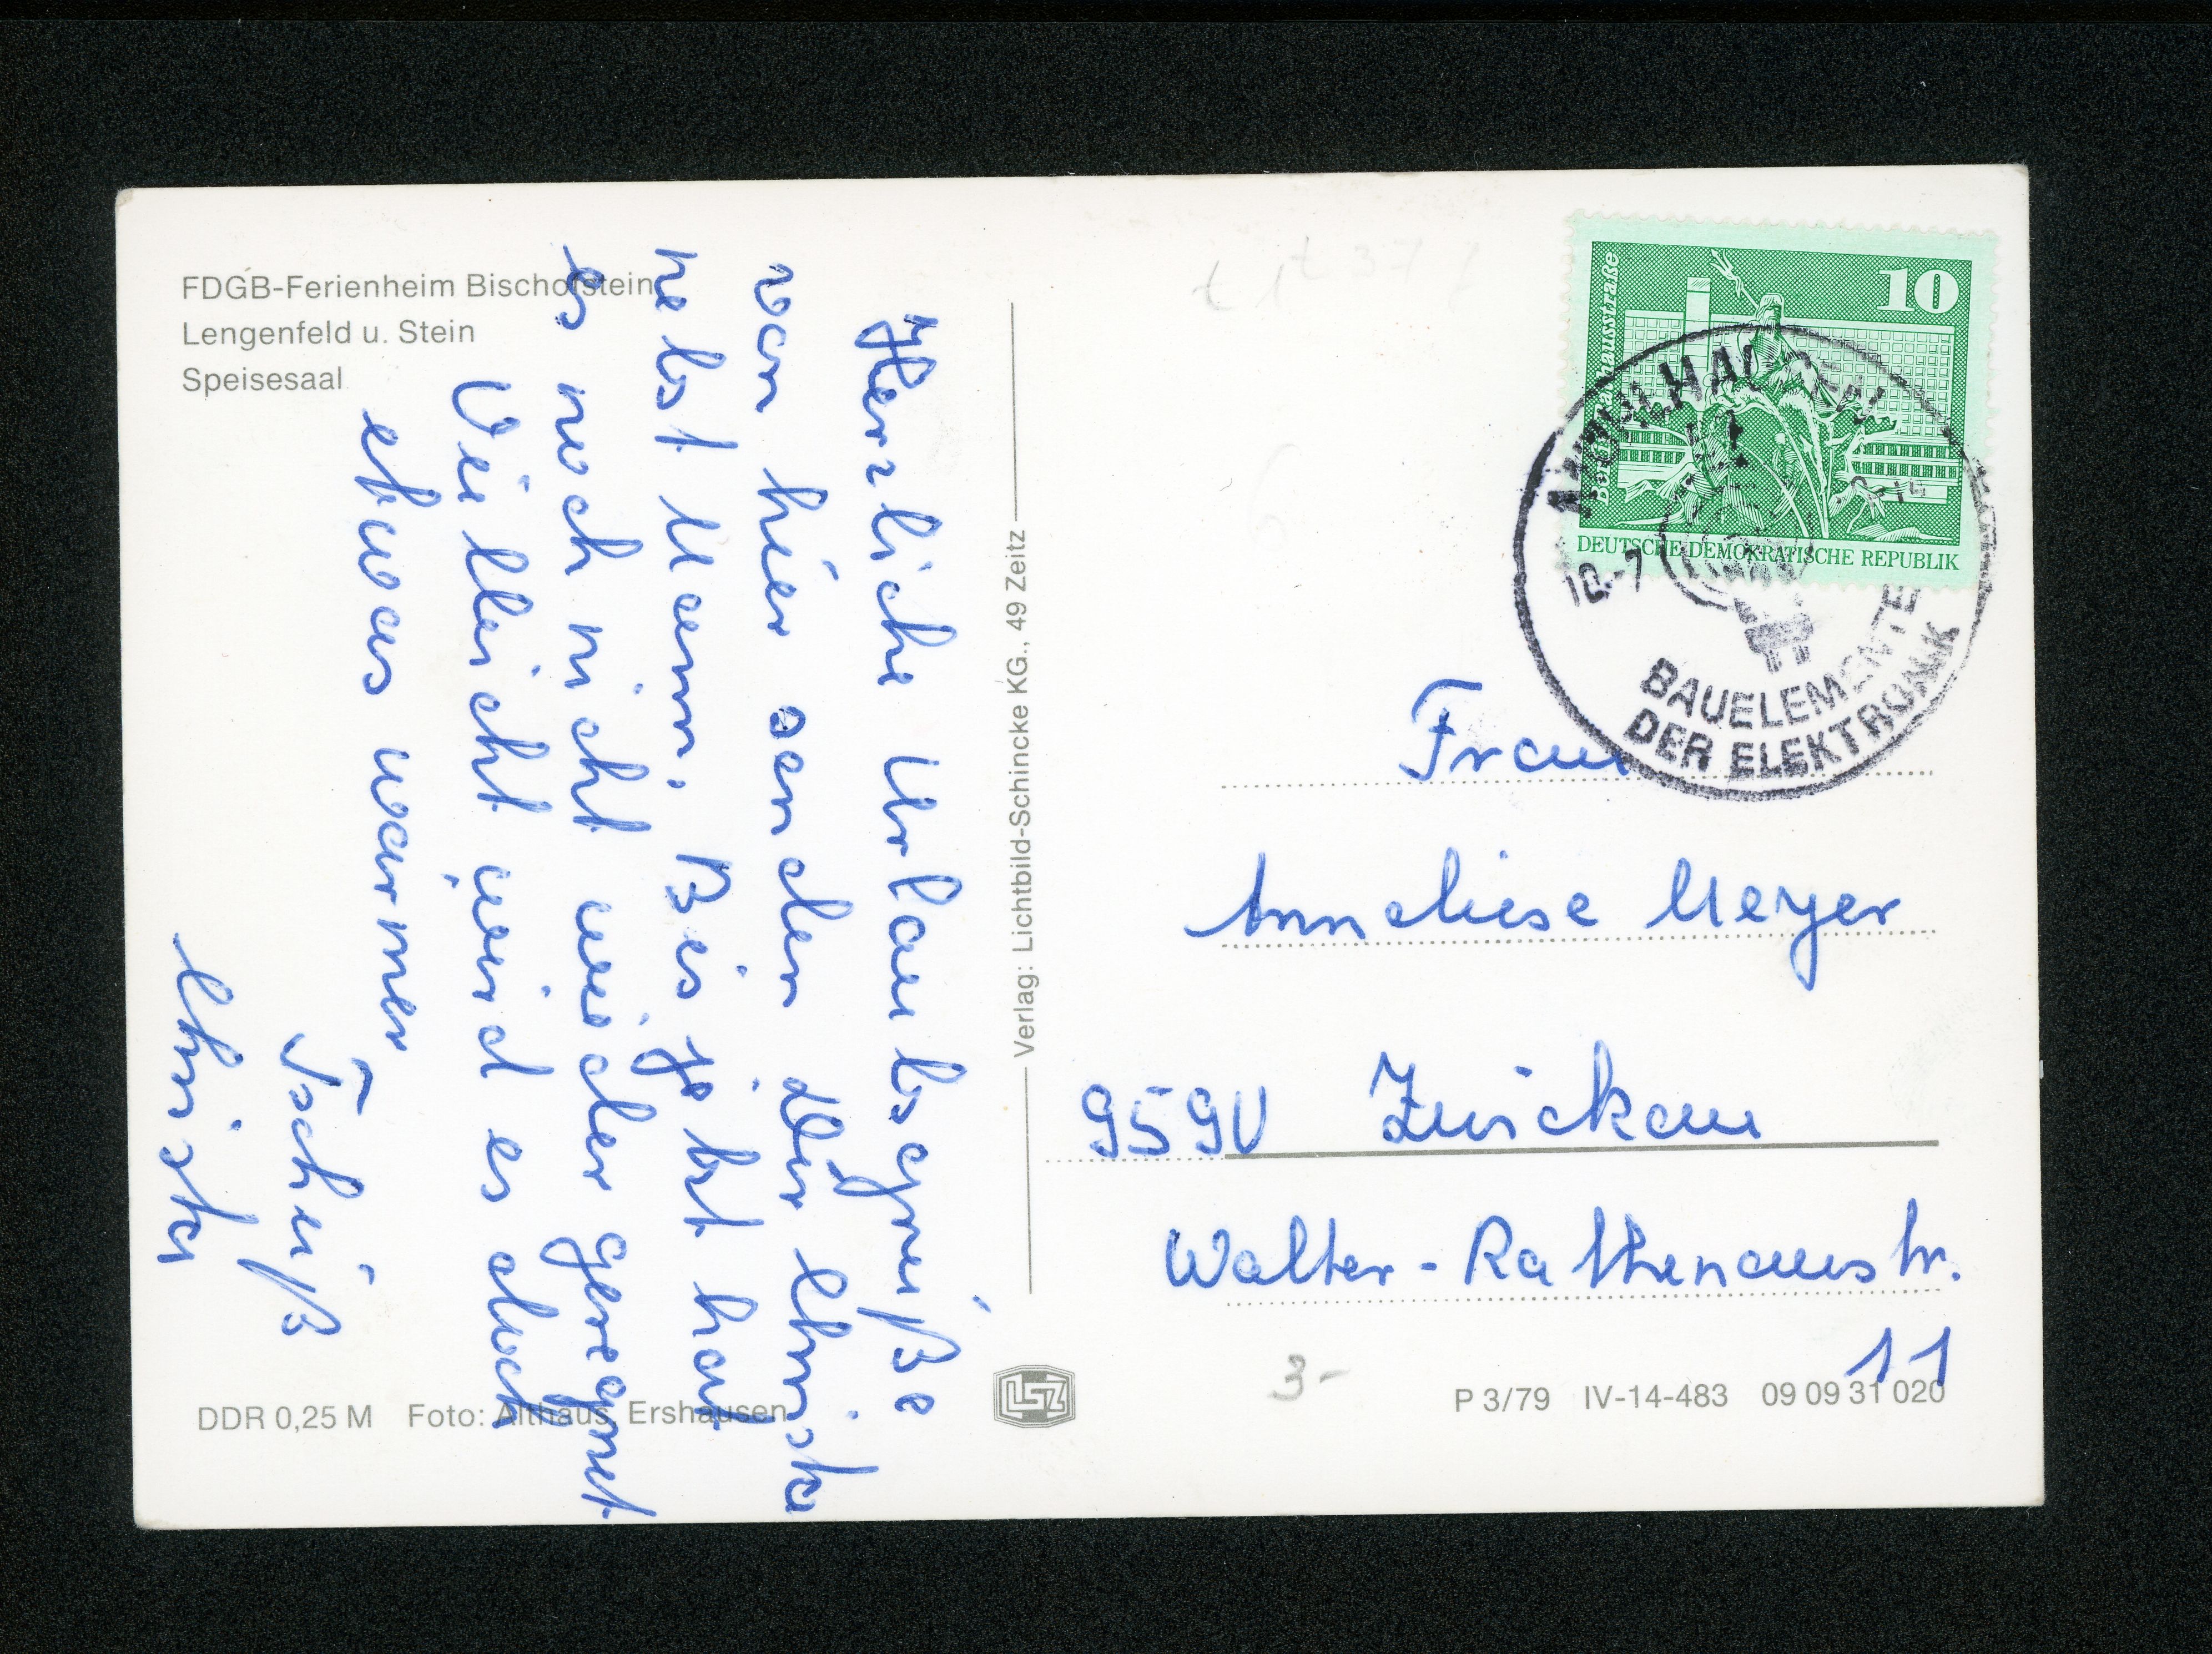 FDGB-Ferienheim Bischofstein
Lengenfeld u. Stein
Speisesaal
Herzliche Urlaubsgrüße
von hier senden Dir Christa
nebst Mann. Bis jetzt hat
es noch nicht wieder geregnet
Vielleicht wird es doch
etwas warmer
Tschüß
Christa
DDR 0,25 M Foto: Althaus, Ershausen
Verlag: Lichtbild-Schincke KG., 49 Zeitz
LSZ
10
Rathausstraße
DEUTSCHE DEMOKRATISCHE REPUBLIK
MÜHLHAUSEN
BAUELEMENTE
DER ELEKTRONIK
Frau
Anneliese Meyer
9590 Zwickau
Walter-Rathenaustr.
11
3-
P 3/79 IV-14-483 09 09 31 020